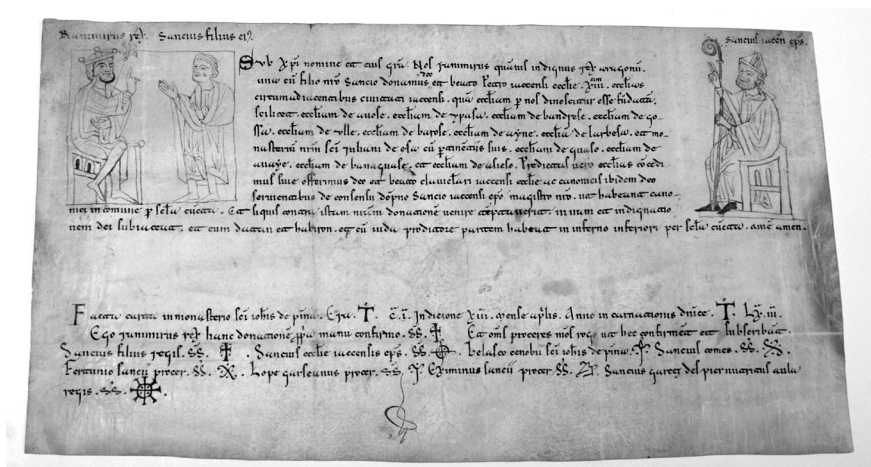 Ranimirus rex. Sancius filius eius.
Sancius iaccen eps.
Sub xpi nomine et eius gra. Nos ranimirus quamuis indignus rex aragonu.
una cu filio nro Sancio donamus deo et beato Petro iaccensi ecclie. XIII. ecclias
circumadiacentibus ciuitati iaccensi. qua eccliam p nos dinoscitur esse fudata.
scilicet. eccliam de auole. eccliam de ypasa. eccliam de bandrese. eccliam de go-
ssa. eccliam de ylle. eccliam de barose. eccliam de ayne. ecclia de larbesa. et mo-
nasteriu nrm sci iuliani de osa cu ptinetiis suis. eccliam de guaso. eccliam de
auaye. eccliam de banaguas. et eccliam de asieso. Predictas uero ecclias cocedi
mus siue offerimus deo et beato clauiclari iaccensi ecclie ac canonicis ibidem deo
seruientibus de consensu dopno Sancio iaccensi epo magistro nro. ut habeant cano-
nici in comune p scla cucta. Et siquis contra istam nram donatione uenire teptauerit. in iram et indignatio
nem dei subiaceat. et cum datan et habiron. et cu iuda proditore partem habeat in inferno inferiori per scla cucta. ame amen.
Facta carta in monasterio sci iohis de pina. Era. T. c. I. Indicione XIII. mense aplis. Anno incarnacionis dnice. T. LX. III.
Ego ranimirus rex hanc donatione ppa manu confirmo. SS. Et oms proceres mos rogo ut hec confirment et subscribat.
Sancius filius regis. SS. Sancius ecclie iaccensis eps. SS. belasco cenobii sci iohis de pina. Sancius comes. SS.
Fortunio sancii procer. SS. Lope garseanus procer. SS. Eximinus sancii procer SS. Sancius garcez del piernutritus aula
regis. SS.